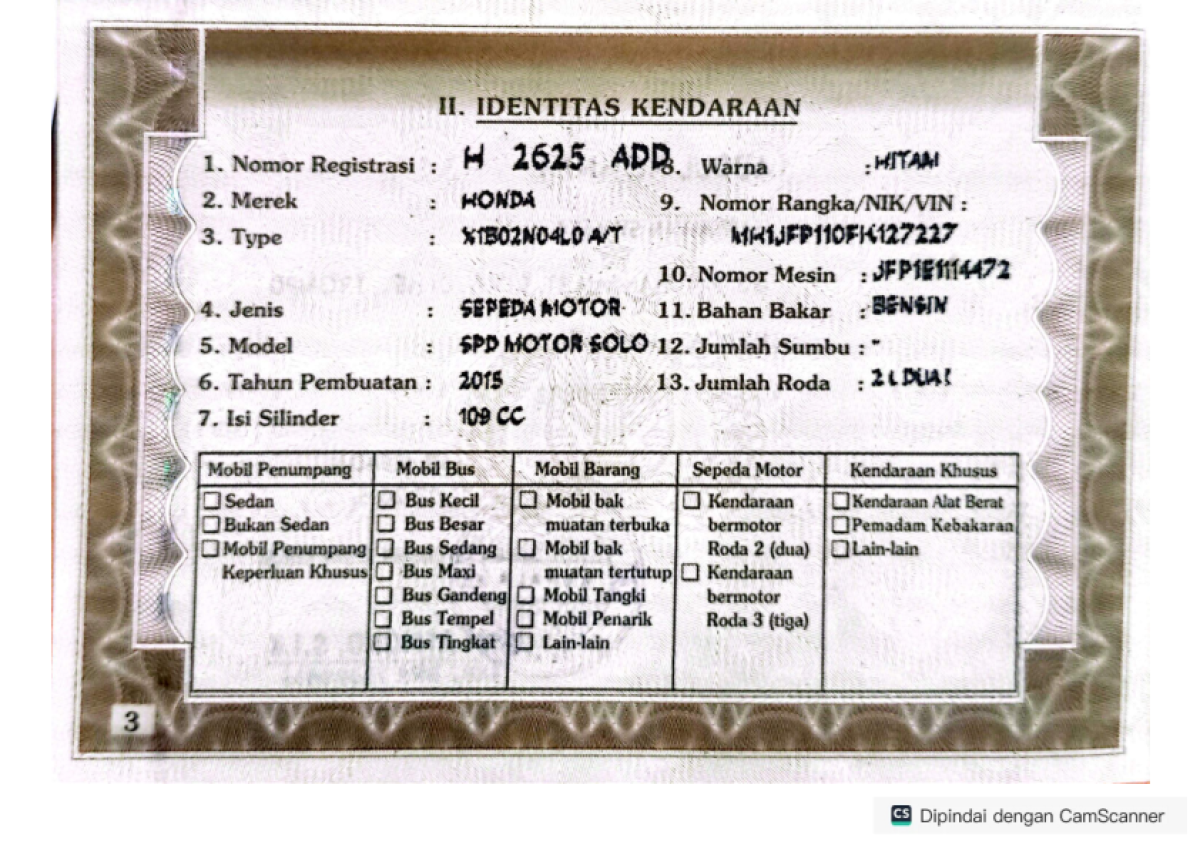 II. IDENTITAS KENDARAAN
1. Nomor Registrasi : H 2625 ADD
2. Merek : HONDA
3. Type : X1B02N04L0 A/
4. Jenis : SEPEDA MOTOR
5. Model : SPD MOTOR SOLO
6. Tahun Pembuatan : 2015
7. Isi Silinder : 109 CC
8. Warna : HITAM
9. Nomor Rangka/NIK/VIN :
MH1JFP110FK127227
10. Nomor Mesin : JFP1E1114472
11. Bahan Bakar : BENSIN
12. Jumlah Sumbu : -
13. Jumlah Roda : 2 ( DUA )
Mobil Penumpang
Sedan
Bukan Sedan
Mobil Penumpang
Keperluan Khusus
Mobil Bus
Bus Kecil
Bus Besar
Bus Sedang
Bus Maxi
Bus Gandeng
Bus Tempel
Bus Tingkat
Mobil Barang
Mobil bak
muatan terbuka
Mobil bak
muatan tertutup
Mobil Tangki
Mobil Penarik
Lain-lain
Sepeda Motor
Kendaraan
bermotor
Roda 2 (dua)
Kendaraan
bermotor
Roda 3 (tiga)
Kendaraan Khusus
Kendaraan Alat Berat
Pemadam Kebakaran
Lain-lain
3
CS Dipindai dengan CamScanner